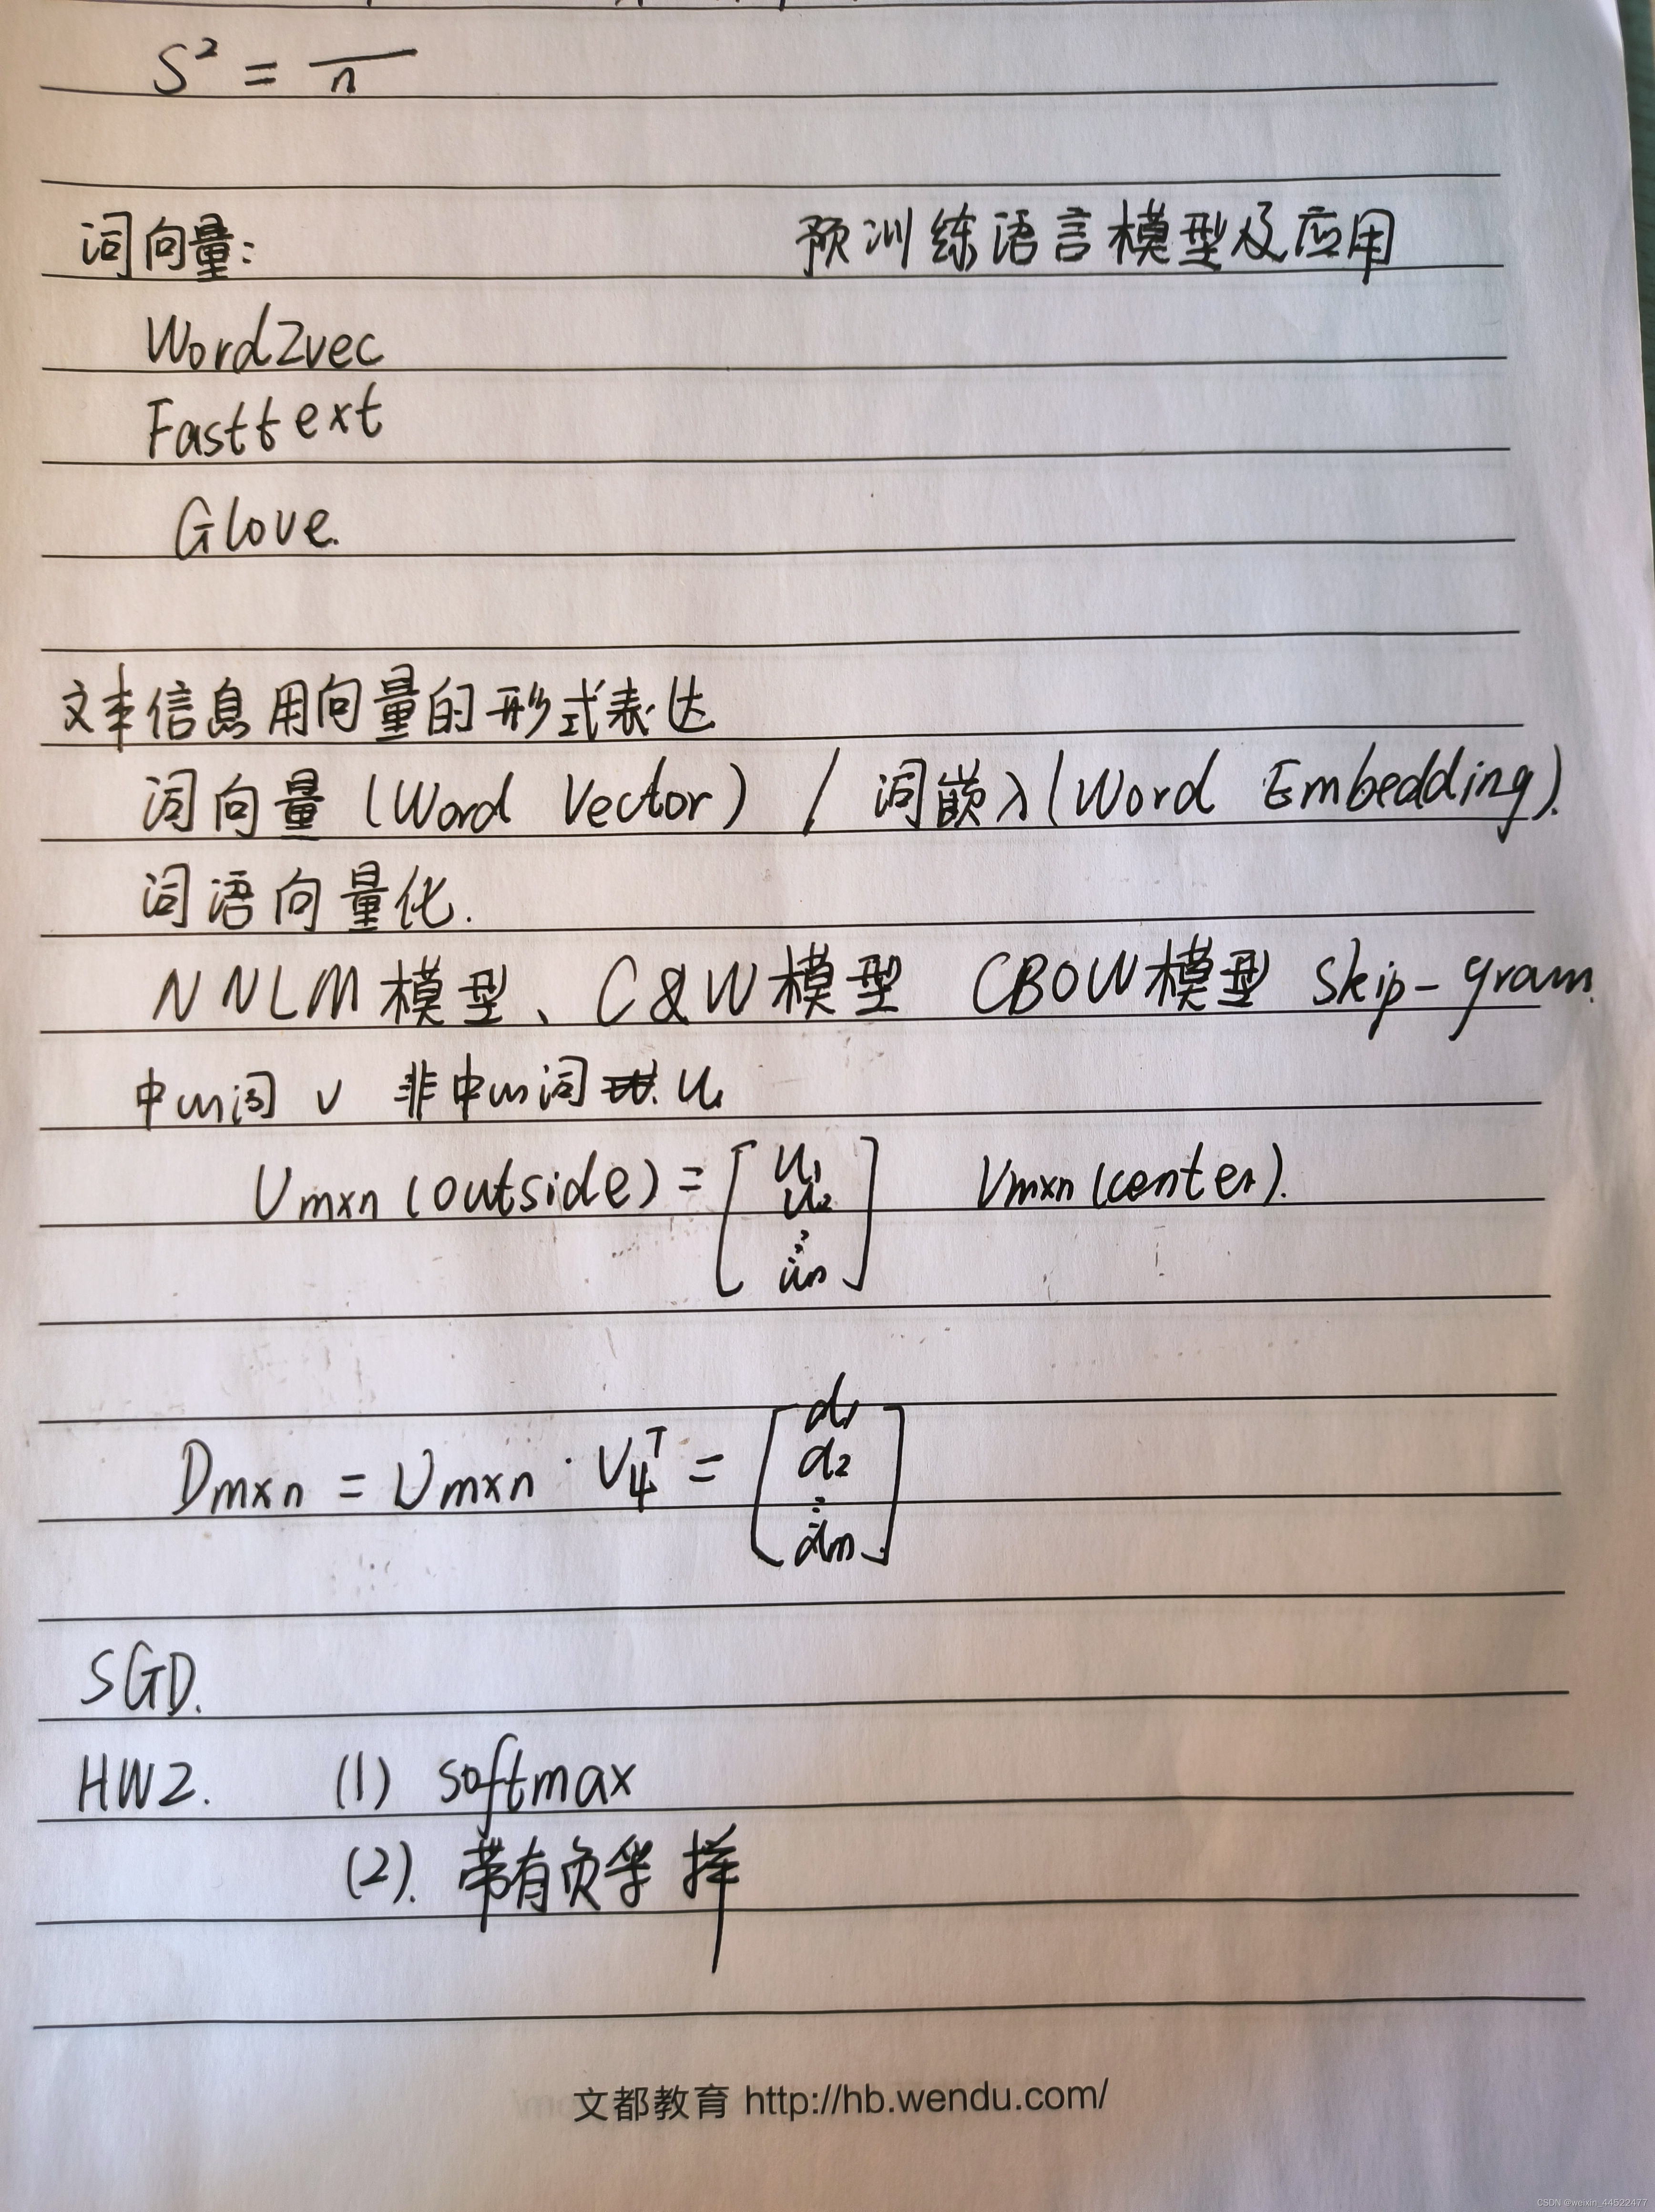 S² = ― / n
词向量: 预训练语言模型及应用
Word2vec
Fasttext
Glove.
文本信息用向量的形式表达
词向量 (Word Vector) / 词嵌入 (Word Embedding).
词语向量化.
NNLM模型、C&W模型 CBOW模型 Skip-gram.
中心词 v 非中心词 u.
U m×n (outside) = [u1 u2 ⋮ un] V m×n (center).
D m×n = U m×n · V4^T = [d1 d2 ⋮ dm]
SGD.
HW2. (1) softmax
(2). 带有负采样
文都教育 http://hb.wendu.com/
CSDN @weixin_44522477